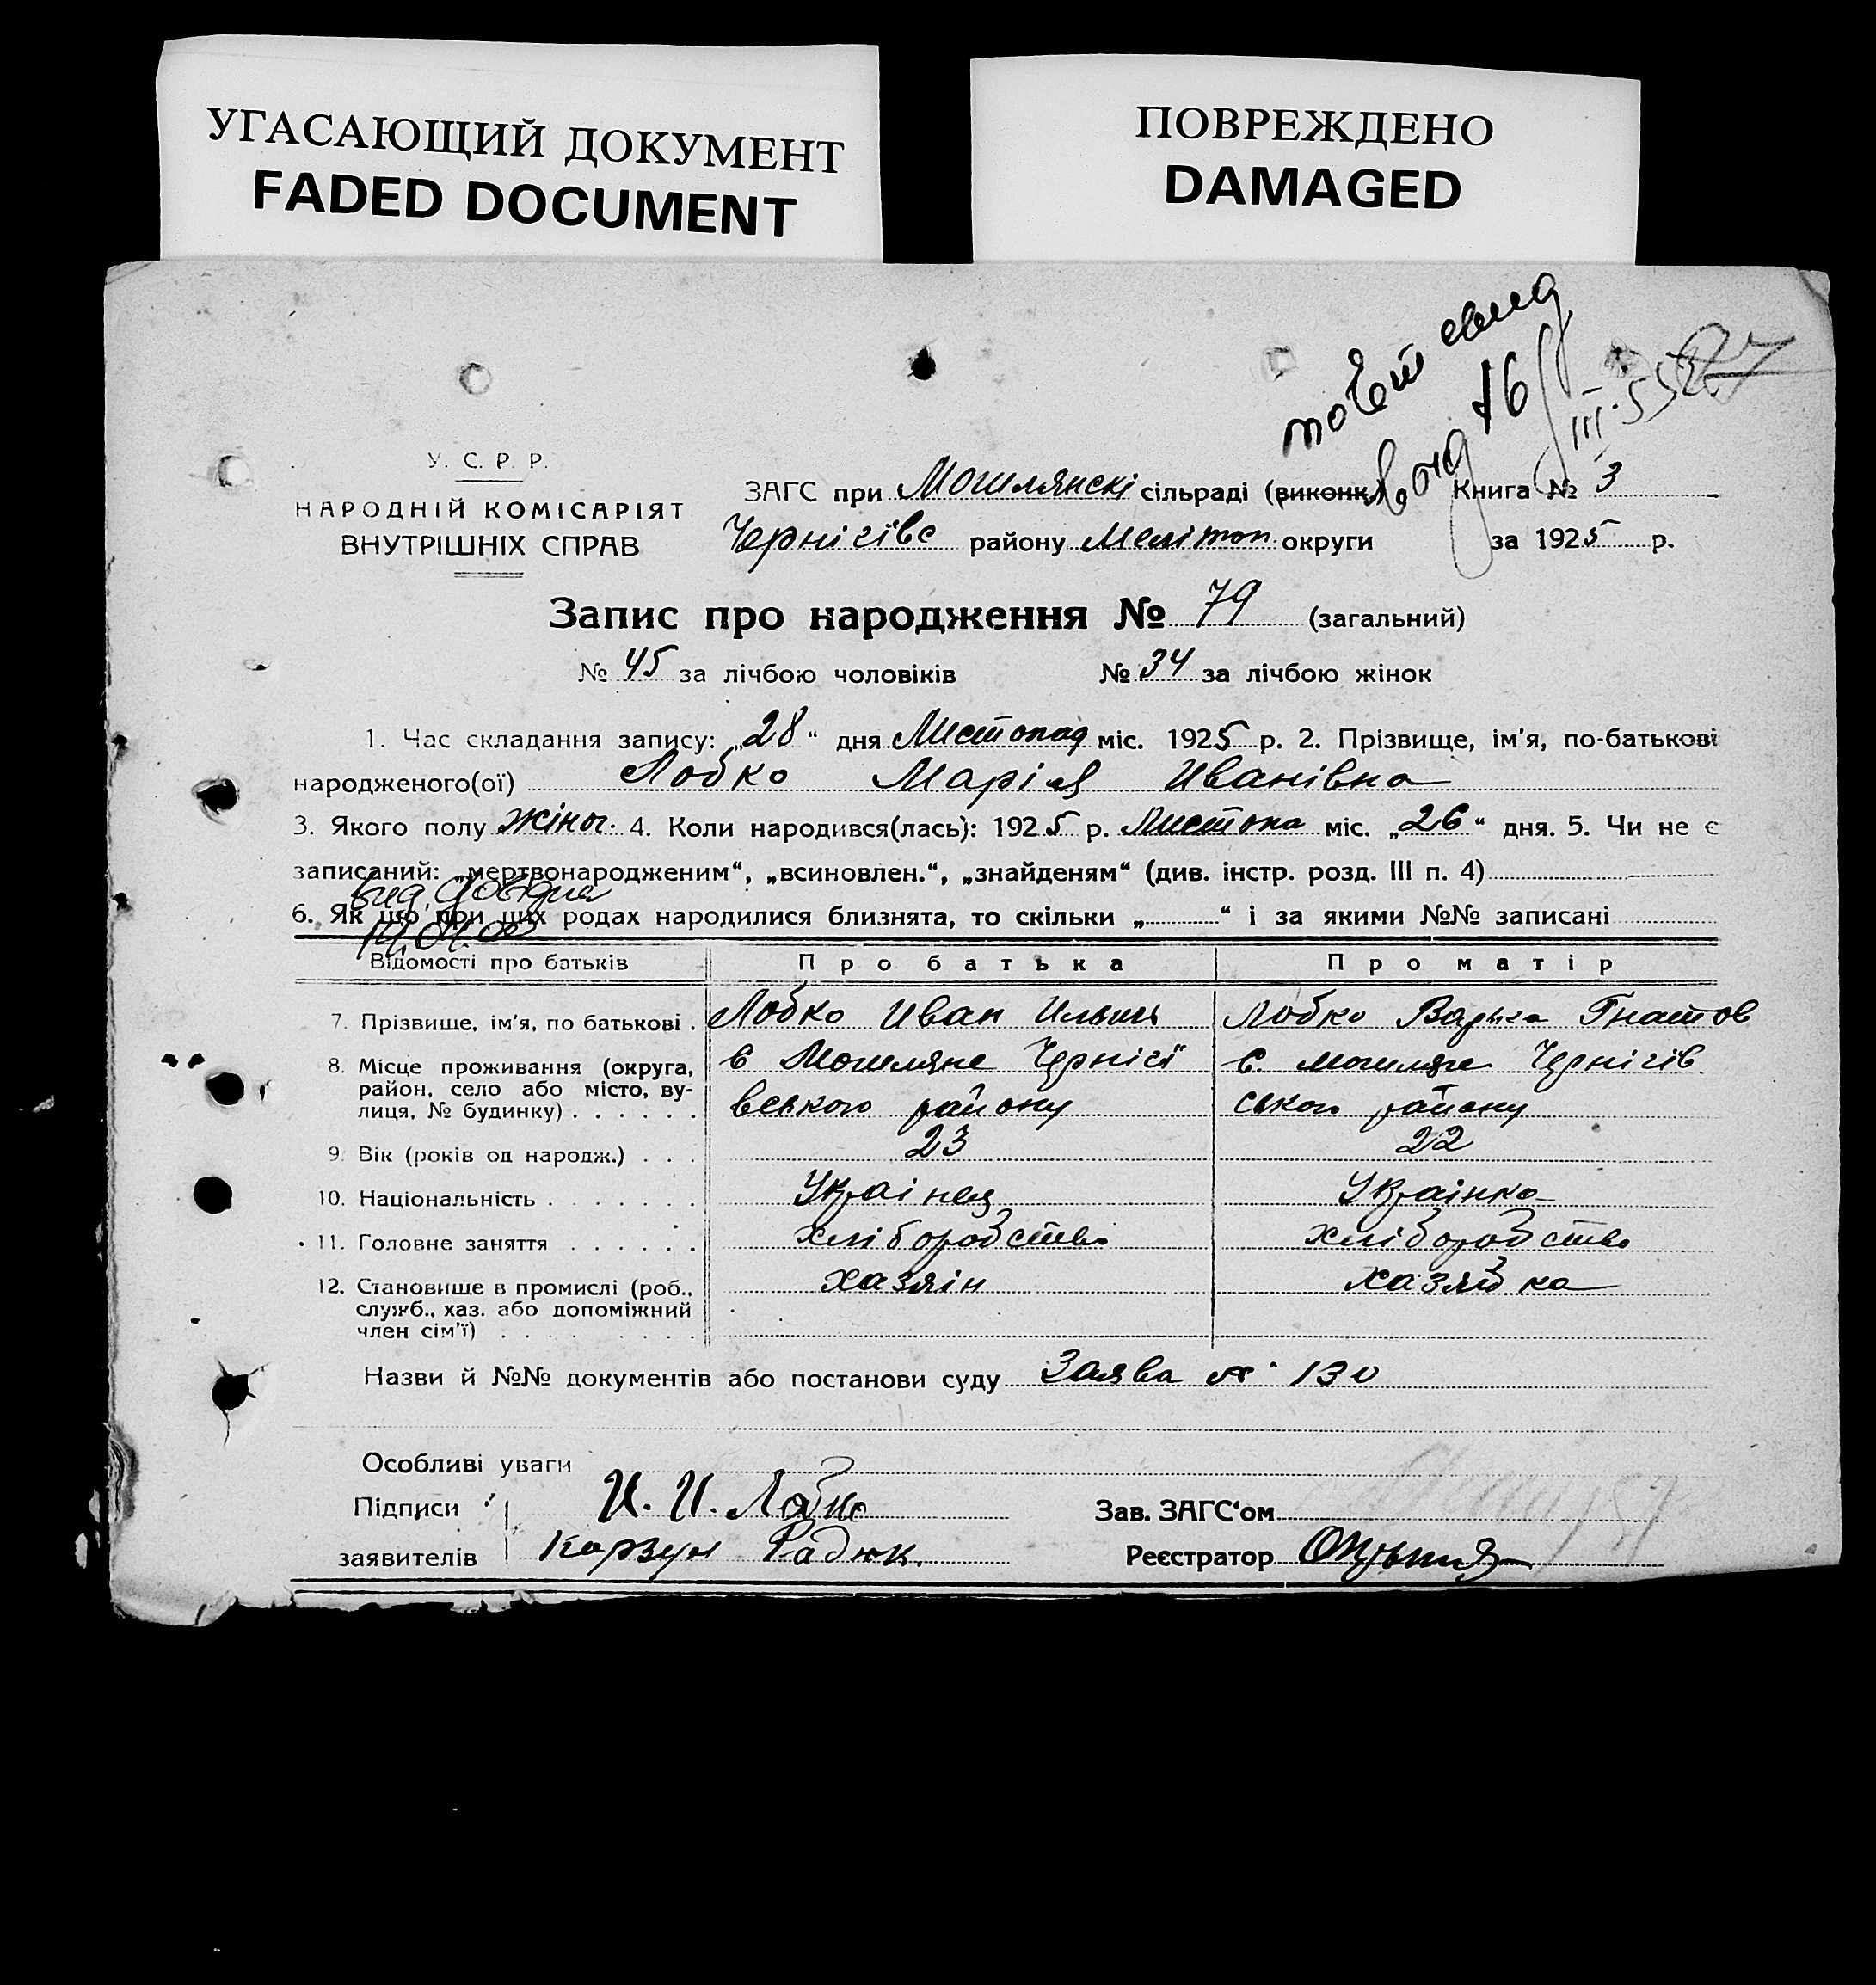 УГАСАЮЩИЙ ДОКУМЕНТ
FADED DOCUMENT
ПОВРЕЖДЕНО
DAMAGED
16
III.55
У. С. Р. Р.
НАРОДНІЙ КОМІСАРІЯТ
ВНУТРІШНІХ СПРАВ
ЗАГС при Мошлянскі сільраді (виконк Книга № 3
Чернігівс району Меліт оп. округи за 1925 р.
Запис про народження № 79 (загальний)
№ 45 за лічбою чоловіків № 34 за лічбою жінок
1. Час складання запису: „28“ дня Листопад міс. 1925 р. 2. Прізвище, ім'я, по-батькові
народженого(ої) Лобко Марія Иванівна
3. Якого полу жіноч. 4. Коли народився(лась): 1925 р. Листопа міс. „26“ дня. 5. Чи не є
записаний: „мертвонародженим“, „всиновлен.“, „знайденям“ (див. інстр. розд. III п. 4)
6. Як що при цих родах народилися близнята, то скільки „ “ і за якими №№ записані
Відомості про батьків Про батька Про матір
7. Прізвище, ім'я, по батькові . Лобко Иван Ильич Лобко Варька Гнатов
8. Місце проживання (округа, район, село або місто, вулиця, № будинку) . . . . . . с Мошляне Чернігі с. мошляне Чернігів
вського району ського району
9. Вік (років од народж.) . . . 23 22
10. Національність . . . . . . . Украінец Украінка
11. Головне заняття . . . . . . хліборобство хліборобство
12. Становище в промислі (роб., служб., хаз. або допоміжний член сім'ї) . . . . . . . . . хазяін хазяйка
Назви й №№ документів або постанови суду Заява № 130
Особливі уваги
Підписи И. И. Лобко Зав. ЗАГС'ом
заявителів Радюк. Реєстратор